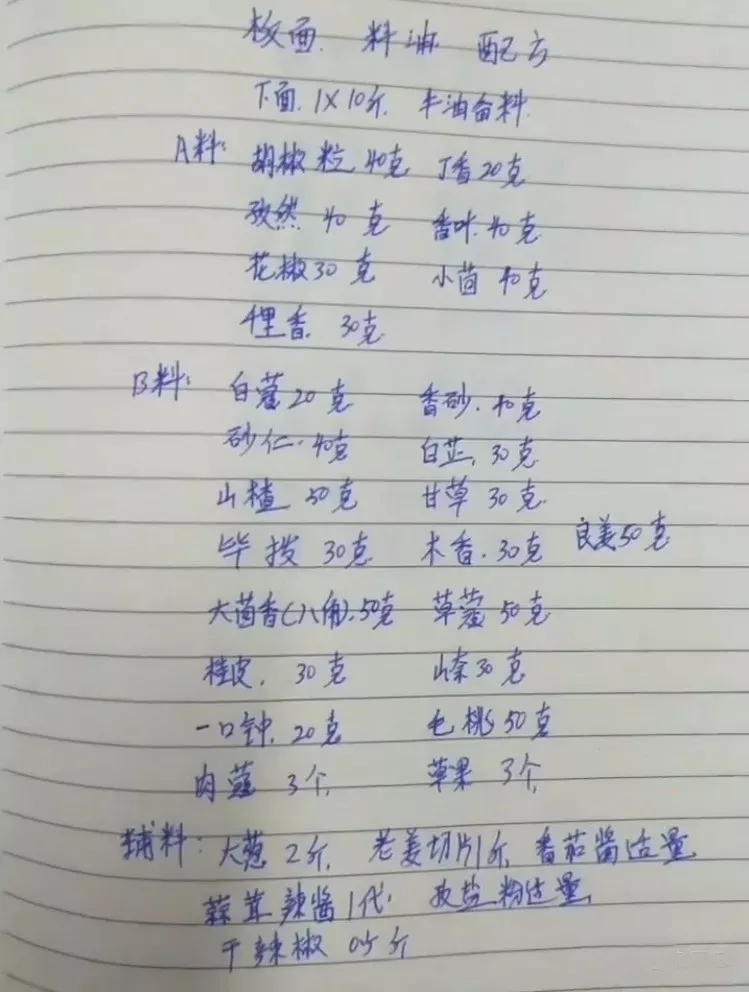 板面 料油 配方
下面 1X10斤 牛油备料
A料: 胡椒粒 40克 丁香20克
孜然 40克 香叶 40克
花椒30克 小茴 40克
千里香 30克
B料: 白蔻20克 香砂 40克
砂仁 40克 白芷 30克
山楂 50克 甘草 30克
毕拨 30克 木香 30克 良姜50克
大茴香(八角) 50克 草蔻 50克
桂皮 30克 山奈30克
一口钟 20克 毛桃50克
肉蔻 3个 草果 3个
辅料: 大葱 2斤 老姜切片1斤 番茄酱适量
蒜茸辣酱1代 盐 粉适量
干辣椒 斤